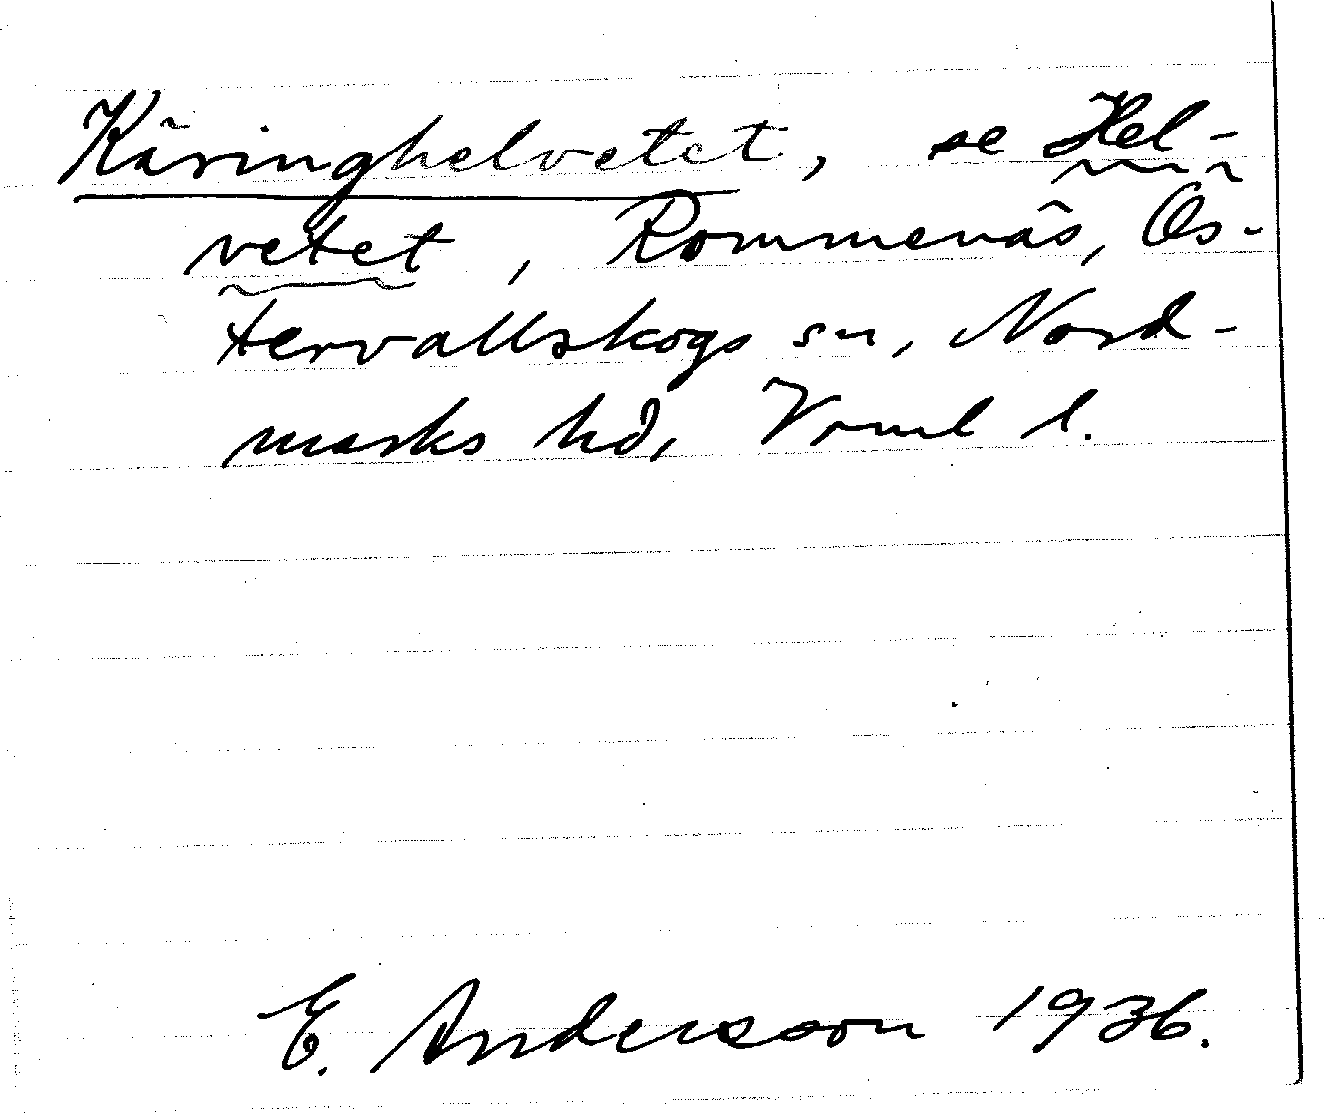 Käringhelvetet, se Hel-
vetet, Rommenäs, Ös-
tervallskogs sn, Nord-
marks hd, Vrml l.
E. Andersson 1936.